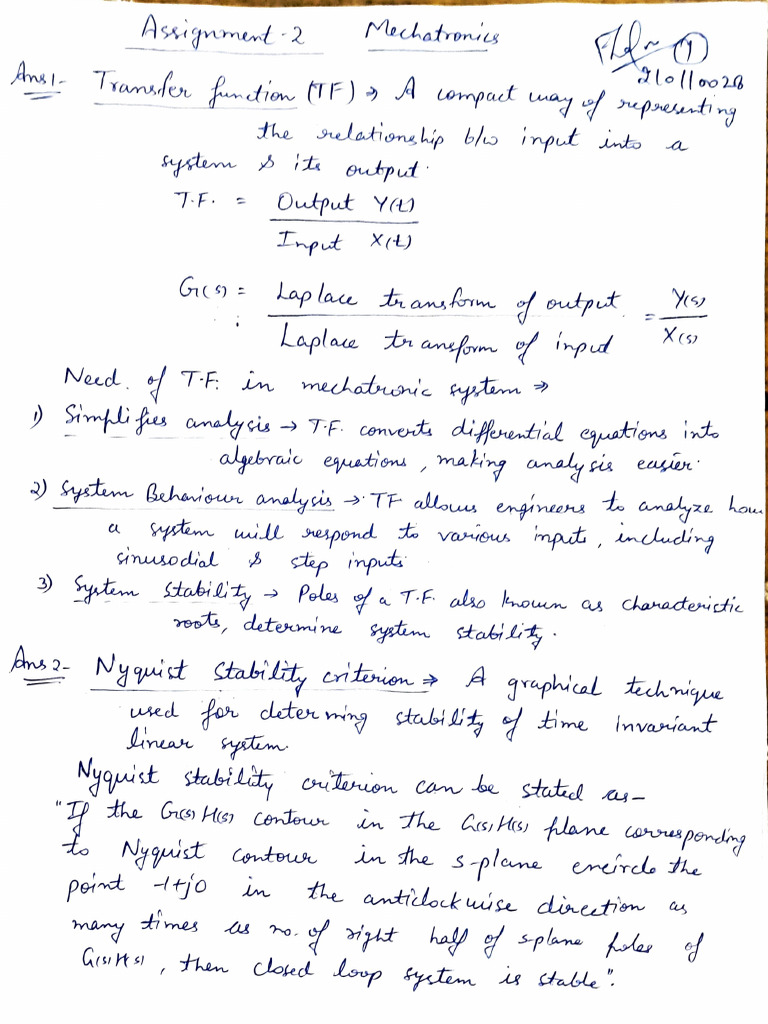 Assignment-2 Mechatronics
(1)
210110028
Ans 1- Transfer function (TF) → A compact way of representing
the relationship b/w input into a
system & its output.
T.F. = Output Y(t)
Input X(t)
G(s) = Laplace transform of output = Y(s)
Laplace transform of input X(s)
Need of T.F. in mechatronic system ⇒
1) Simplifies analysis → T.F. converts differential equations into
algebraic equations, making analysis easier.
2) System Behaviour analysis → TF allows engineers to analyze how
a system will respond to various inputs, including
sinusodial & step inputs
3) System Stability → Poles of a T.F. also known as characteristic
roots, determine system stability.
Ans 2- Nyquist Stability criterion ⇒ A graphical technique
used for determing stability of time invariant
linear system.
Nyquist stability criterion can be stated as-
"If the G(s) H(s) contour in the G(s) H(s) plane corresponding
to Nyquist contour in the s-plane encircle the
point -1+j0 in the anticlockwise direction as
many times as no. of right half of s-plane poles of
G(s) H(s), then closed loop system is stable".